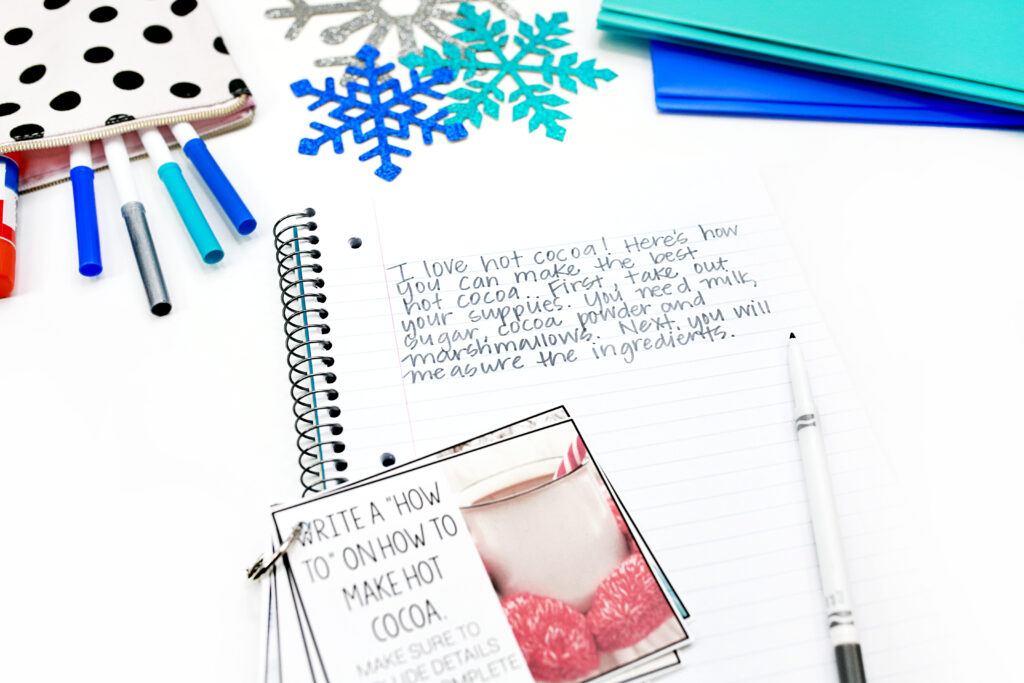 I love hot cocoa! Here's how
you can make the best
hot cocoa. First, take out
your supplies. You need milk,
sugar, cocoa powder and
marshmallows. Next, you will
measure the ingredients.
WRITE A "HOW
TO" ON HOW TO
MAKE HOT
COCOA.
MAKE SURE TO
DETAILS